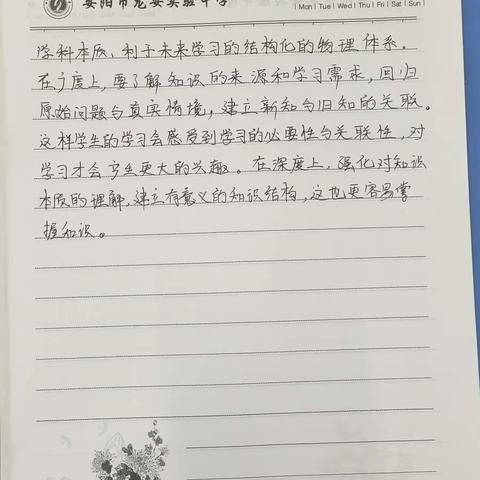 安阳市龙安实验中学
Mon Tue Wed Thu Fri Sat Sun
学科本质、利于未来学习的结构化的物理体系。
在广度上,要了解知识的来源和学习需求,回归
原始问题与真实情境,建立新知与旧知的关联。
这样学生的学习会感受到学习的必要性与关联性,对
学习才会产生更大的兴趣。在深度上,强化对知识
本质的理解,建立有意义的知识结构,这也更容易掌
握知识。